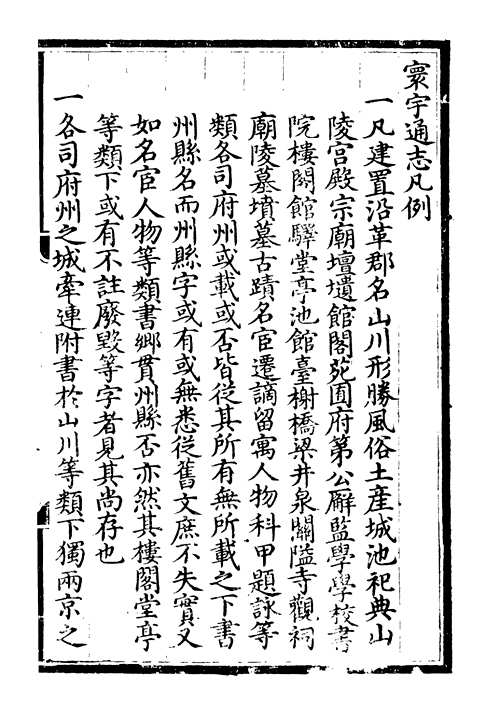 寰宇通志凡例
一凡建置沿革郡名山川形勝風俗土產城池祀典山
陵宫殿宗廟壇壝館閣苑囿府第公廨監學學校書
院樓閣館驛堂亭池館臺榭橋梁井泉關隘寺觀祠
廟陵墓墳墓古蹟名宦遷謫留寓人物科甲題詠等
類各司府州或載或否皆從其所有無所載之下書
州縣名而州縣字或有或無悉從舊文庶不失實又
如名宦人物等類書鄉貫州縣否亦然其樓閣堂亭
等類下或有不註廢毀等字者見其尚存也
一各司府州之城牽連附書於山川等類下獨兩京之